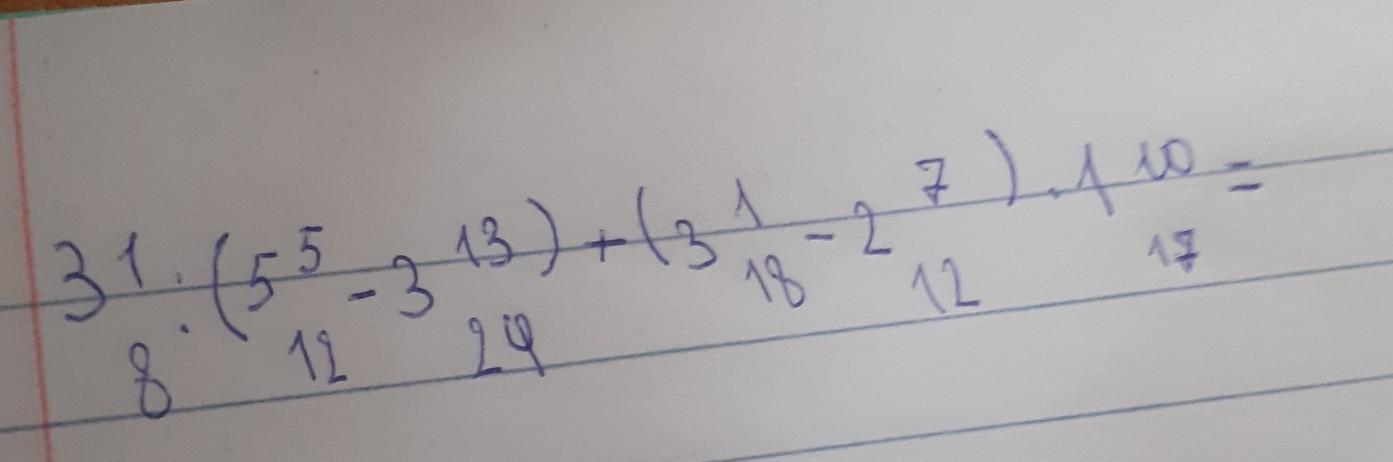 3 1/8 : (5 5/12 - 3 13/24) + (3 1/18 - 2 7/12) . 1 10/17 =